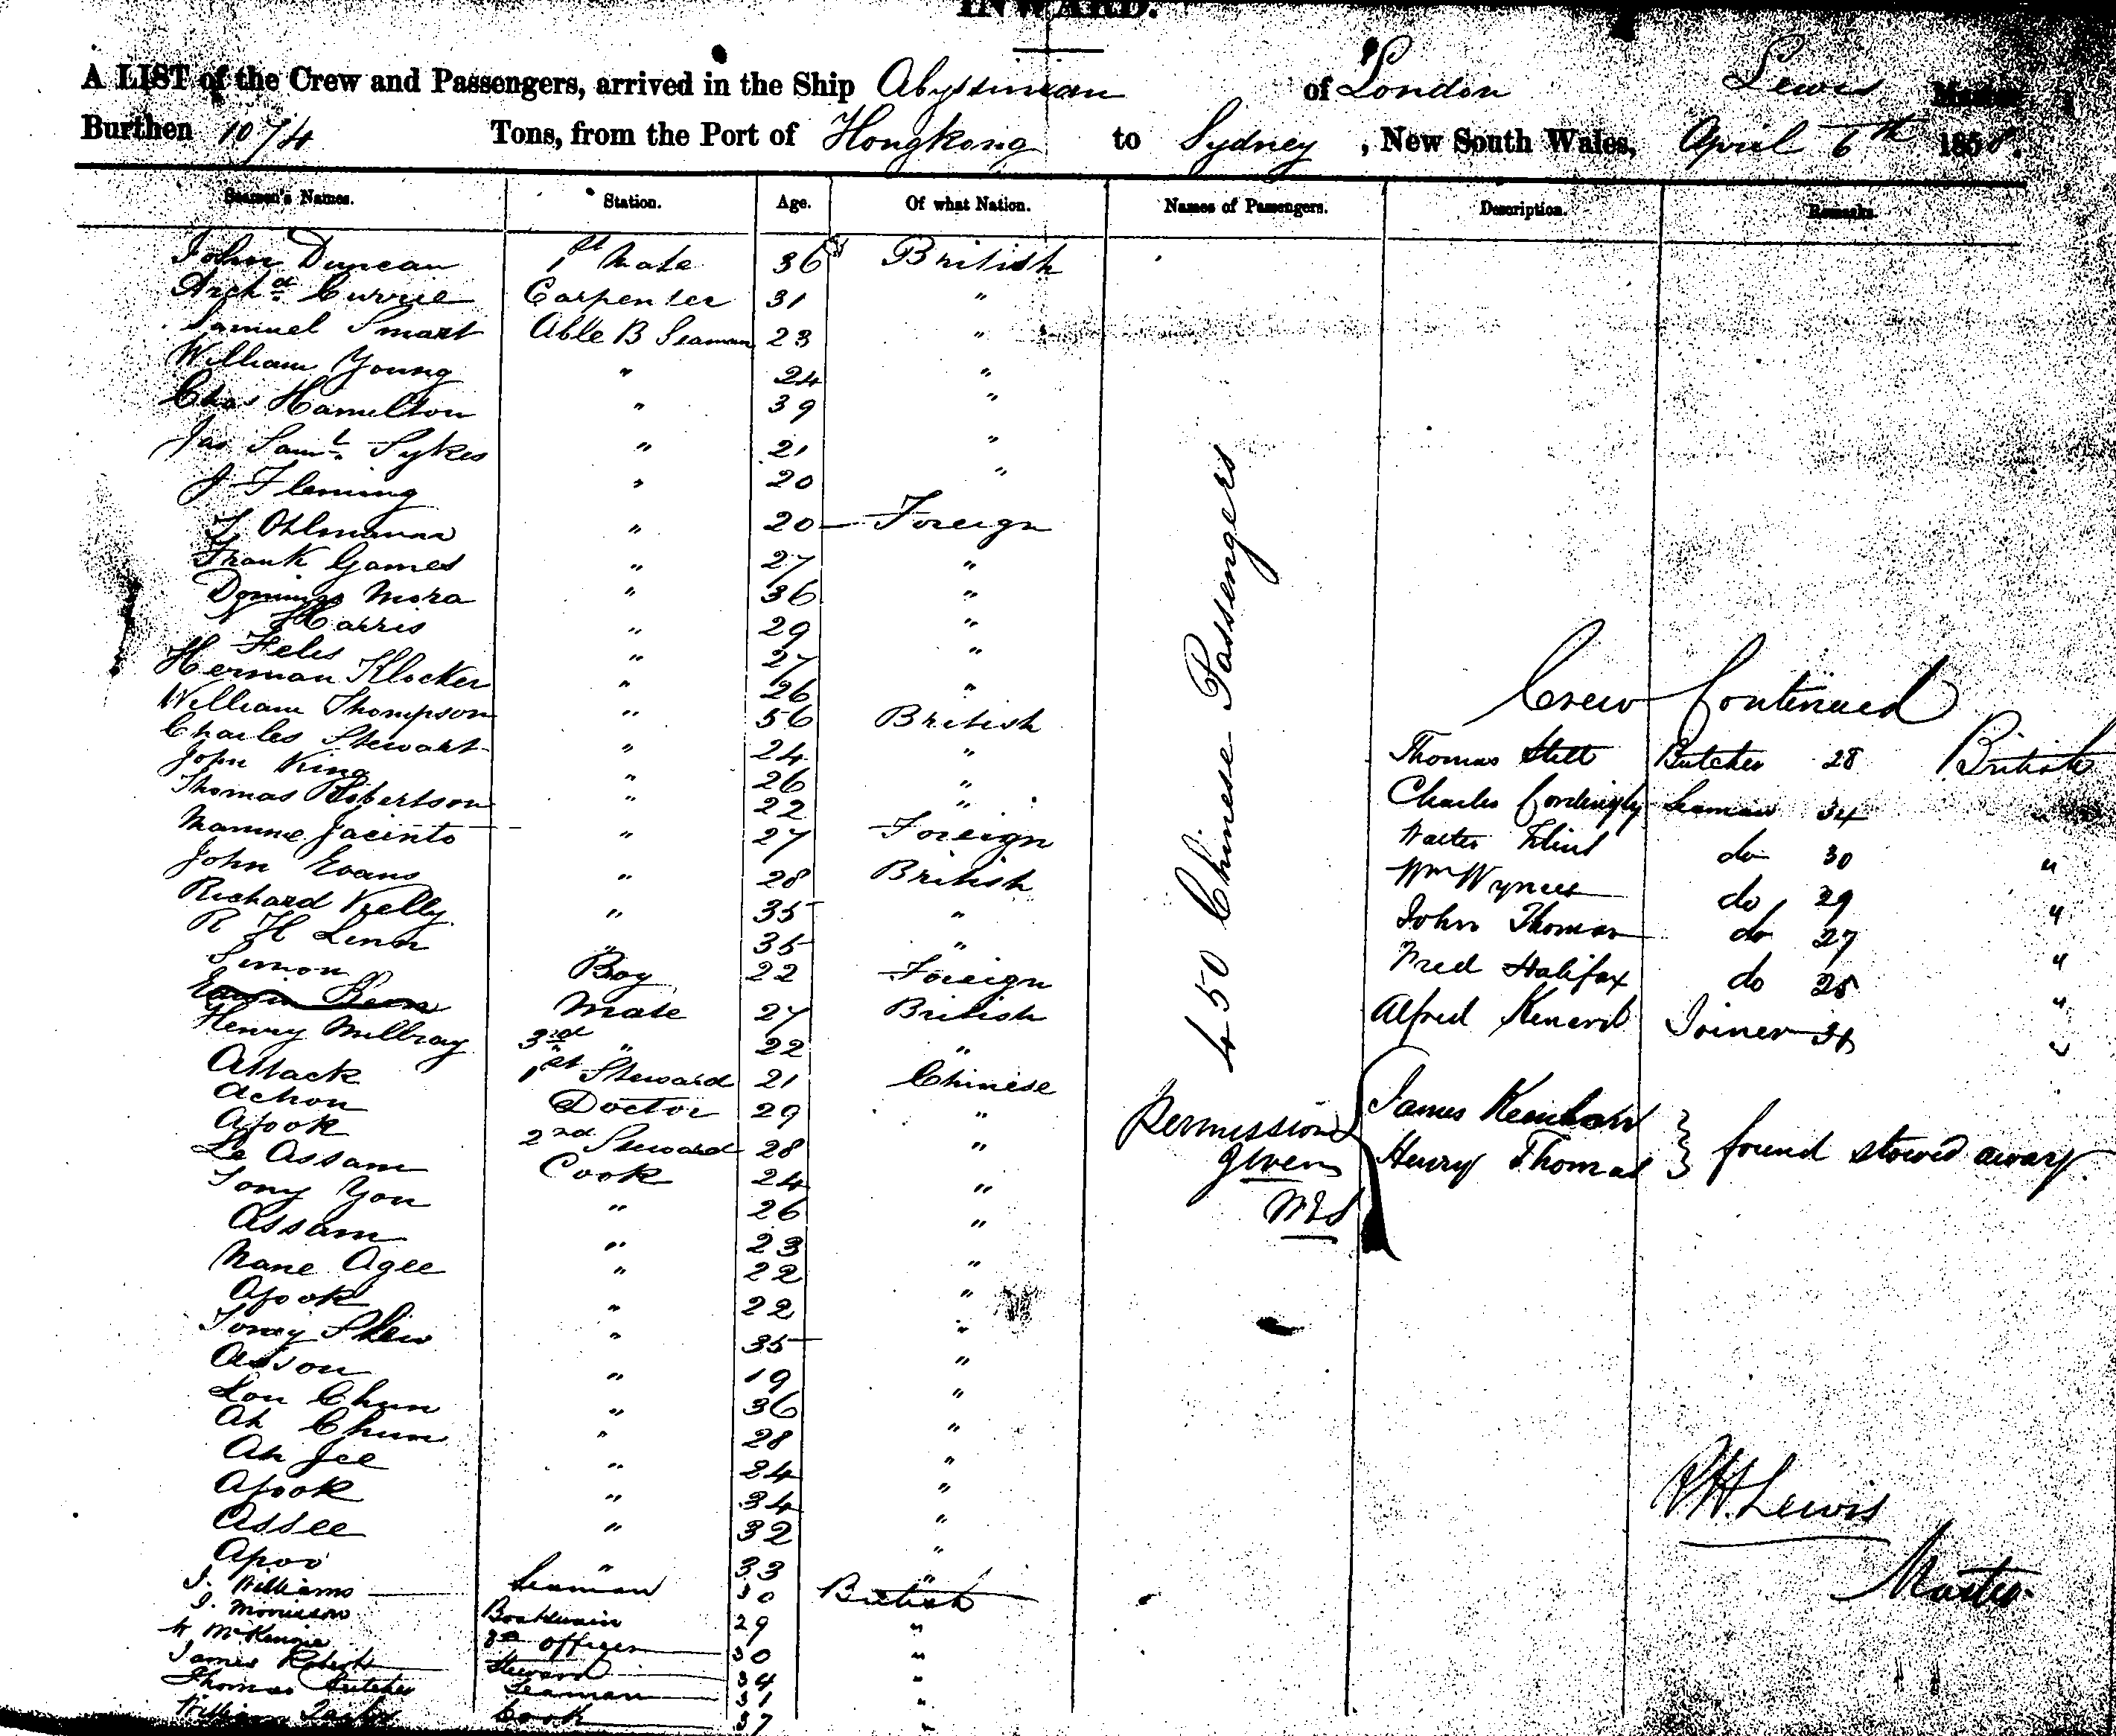 INWARD.
A LIST of the Crew and Passengers, arrived in the Ship Abyssinian of London Lewis Master
Burthen 1074 Tons, from the Port of Hongkong to Sydney, New South Wales, April 6th 1858.
Seamen's Names. Station. Age. Of what Nation. Names of Passengers. Description. Remarks.
John Duncan 1st Mate 36 British
Archd Currie Carpenter 31 "
Samuel Smart Able B Seaman 23 "
William Young " 24 "
Chas Hamilton " 39 "
Jas Saml Sykes " 21 "
J Fleming " 20 "
Ohlmann " 20 Foreign
Frank Games " 27 "
Domingo Mora " 36 "
N Harris " 29 "
Feles " 27 "
Herman Klocker " 26 "
William Thompson " 56 British
Charles Stewart " 24 "
John King " 26 "
Thomas Robertson " 22 "
Jacinto " 27 Foreign
John Evans " 28 British
Richard Kelly " 35 "
R H Linn " 35 "
Simon Boy 22 Foreign
Mate 27 British
Henry Millray 3rd " 22 "
Attack 1st Steward 21 Chinese
Achon Doctor 29 "
Afook 2nd Steward 28 "
Le Assam Cook 24 "
Tong You " 26 "
Assam " 23 "
Nane Agee " 22 "
Afook " 22 "
Tong Shew " 35 "
Assou " 19 "
Lou Chun " 36 "
Ah Chun " 28 "
Ah Jee " 24 "
Afook " 34 "
Assee " 32 "
Apoo " 33 "
J. Williams Seaman 30 British
J. Morrison Boatswain 29 "
McKenzie 3rd Officer 30 "
James Robert Steward 34 "
Thomas Butcher Seaman 31 "
William Taylor Cook 37 "
450 Chinese Passengers
Crew Continued
Thomas Stitt Butcher 28 British
Charles Cordingly Seaman 34 "
Walter Flint do 30 "
Wm Wynes do 29 "
John Thomas do 27 "
Fred Halifax do 25 "
Alfred Kenard Joiner "
Permission given
James
Henry Thomas
found stowed away
Lewis
Master